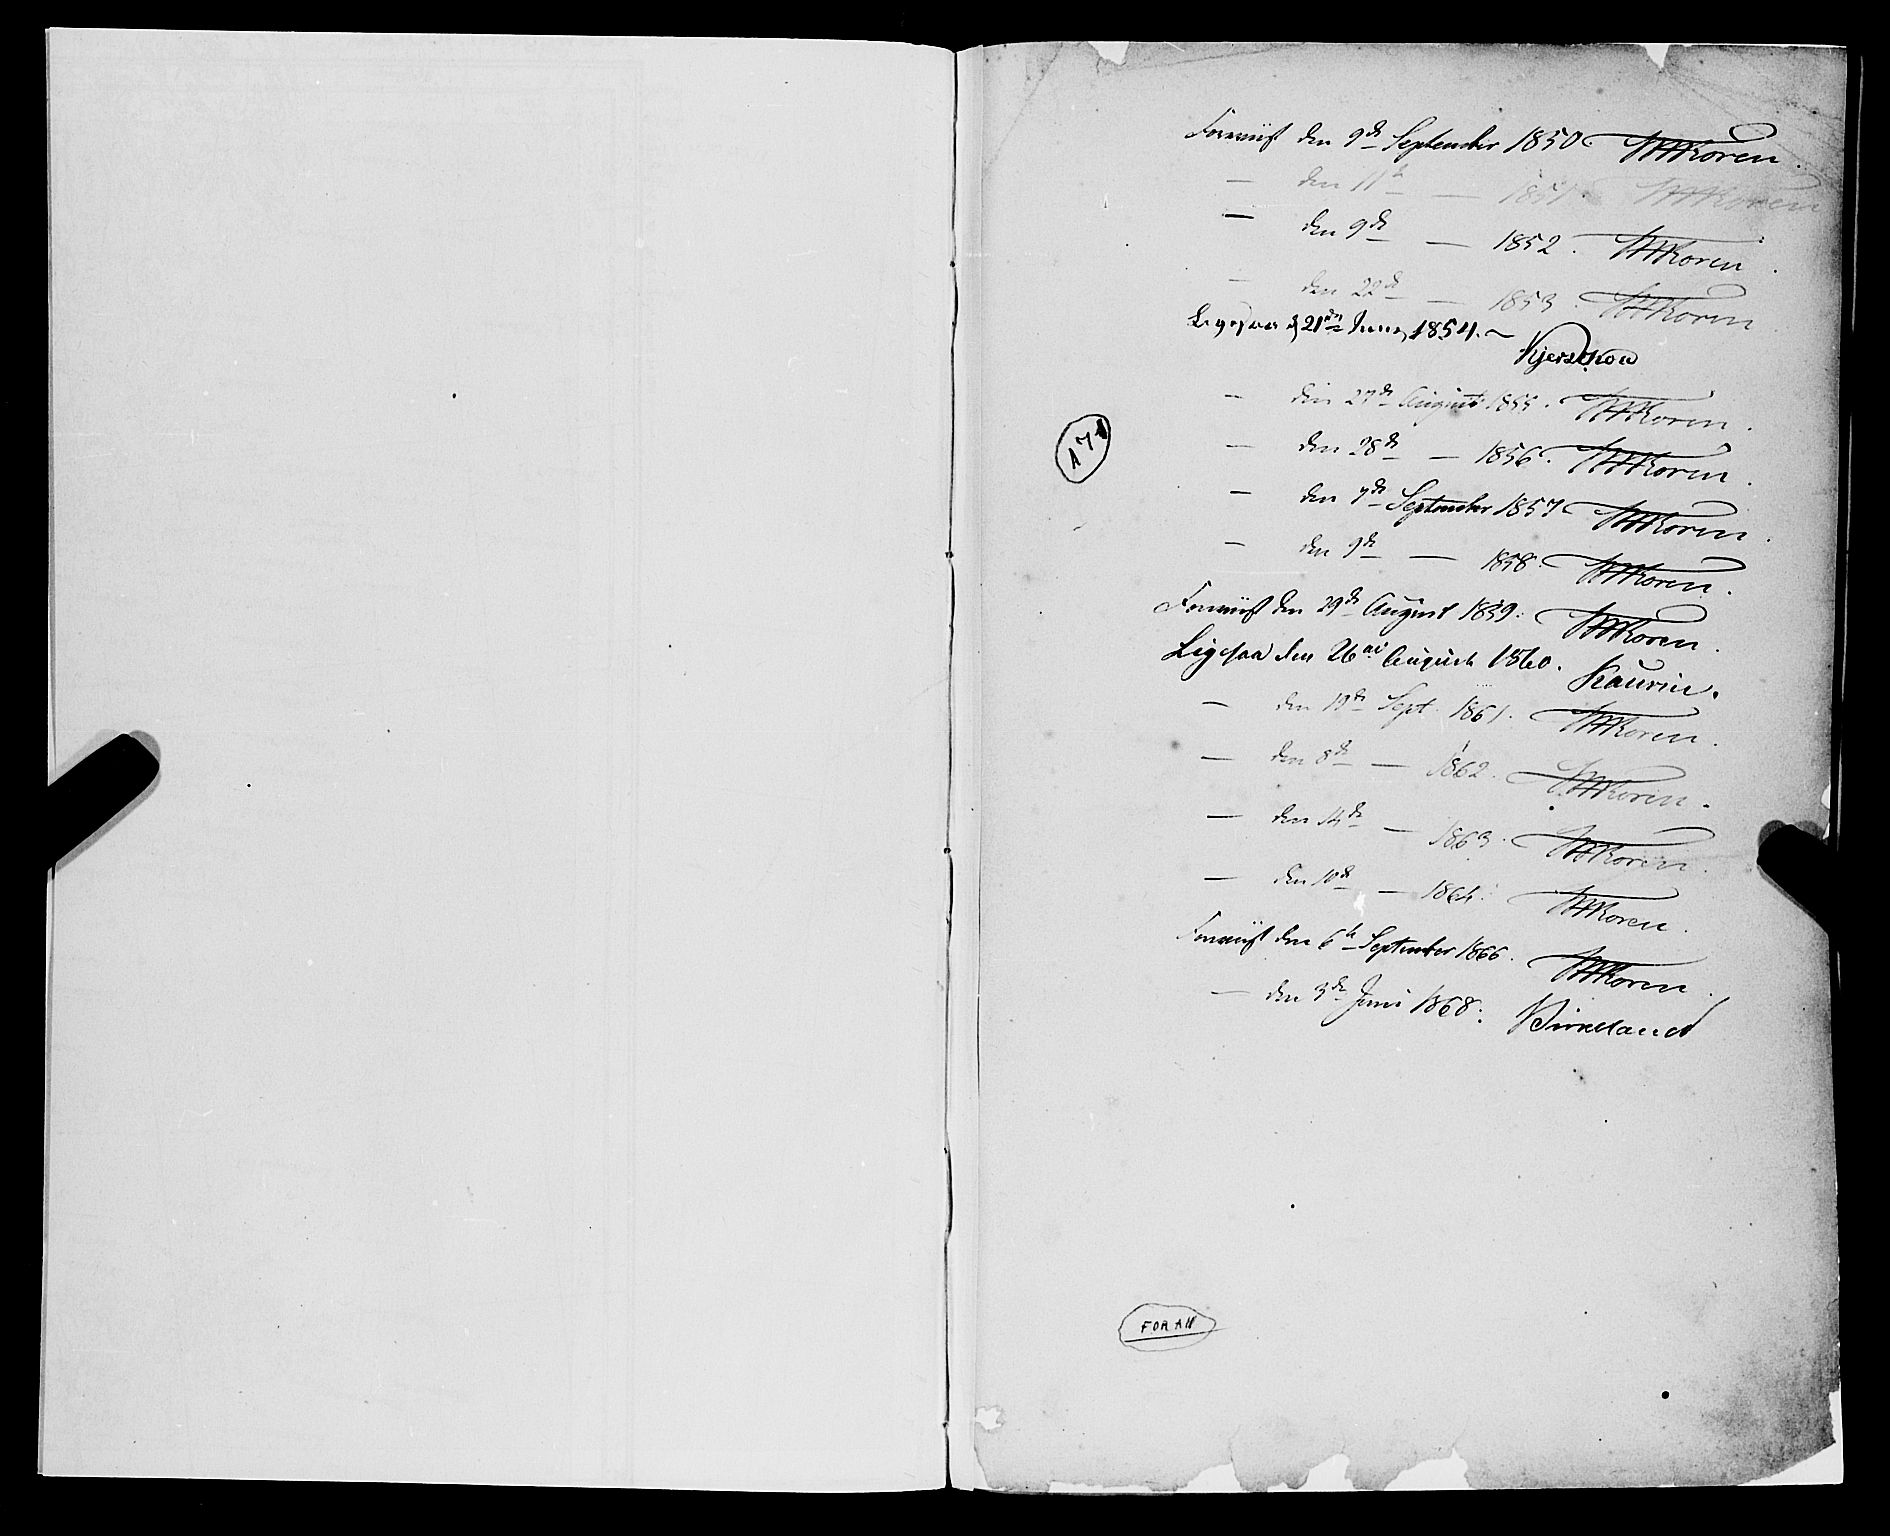 Foreviist den 9de September 1850. WFKoren.
— den 11te — 1851. WFKoren
— den 9de — 1852. WFKoren.
— den 22de — 1853. WFKoren
Ligesaa d 21de Juni, 1854. —
Kjerschow
— den 27de August 1855. WFKoren.
— den 28de — 1856. WFKoren.
— den 7de September 1857 WFKoren.
— den 9de — 1858. WFKoren.
A 7
Foreviist den 29de August 1859. WFKoren.
Ligesaa den 26de August 1860. Kaurin.
— den 19de Sept. 1861. WFKoren.
— den 8de — 1862. WFKoren.
— den 14de — 1863. WFKoren.
— den 10de — 1864. WFKoren.
Foreviist den 6te September 1866. WFKoren.
— den 3de Juni 1868. Birkeland
FORAN